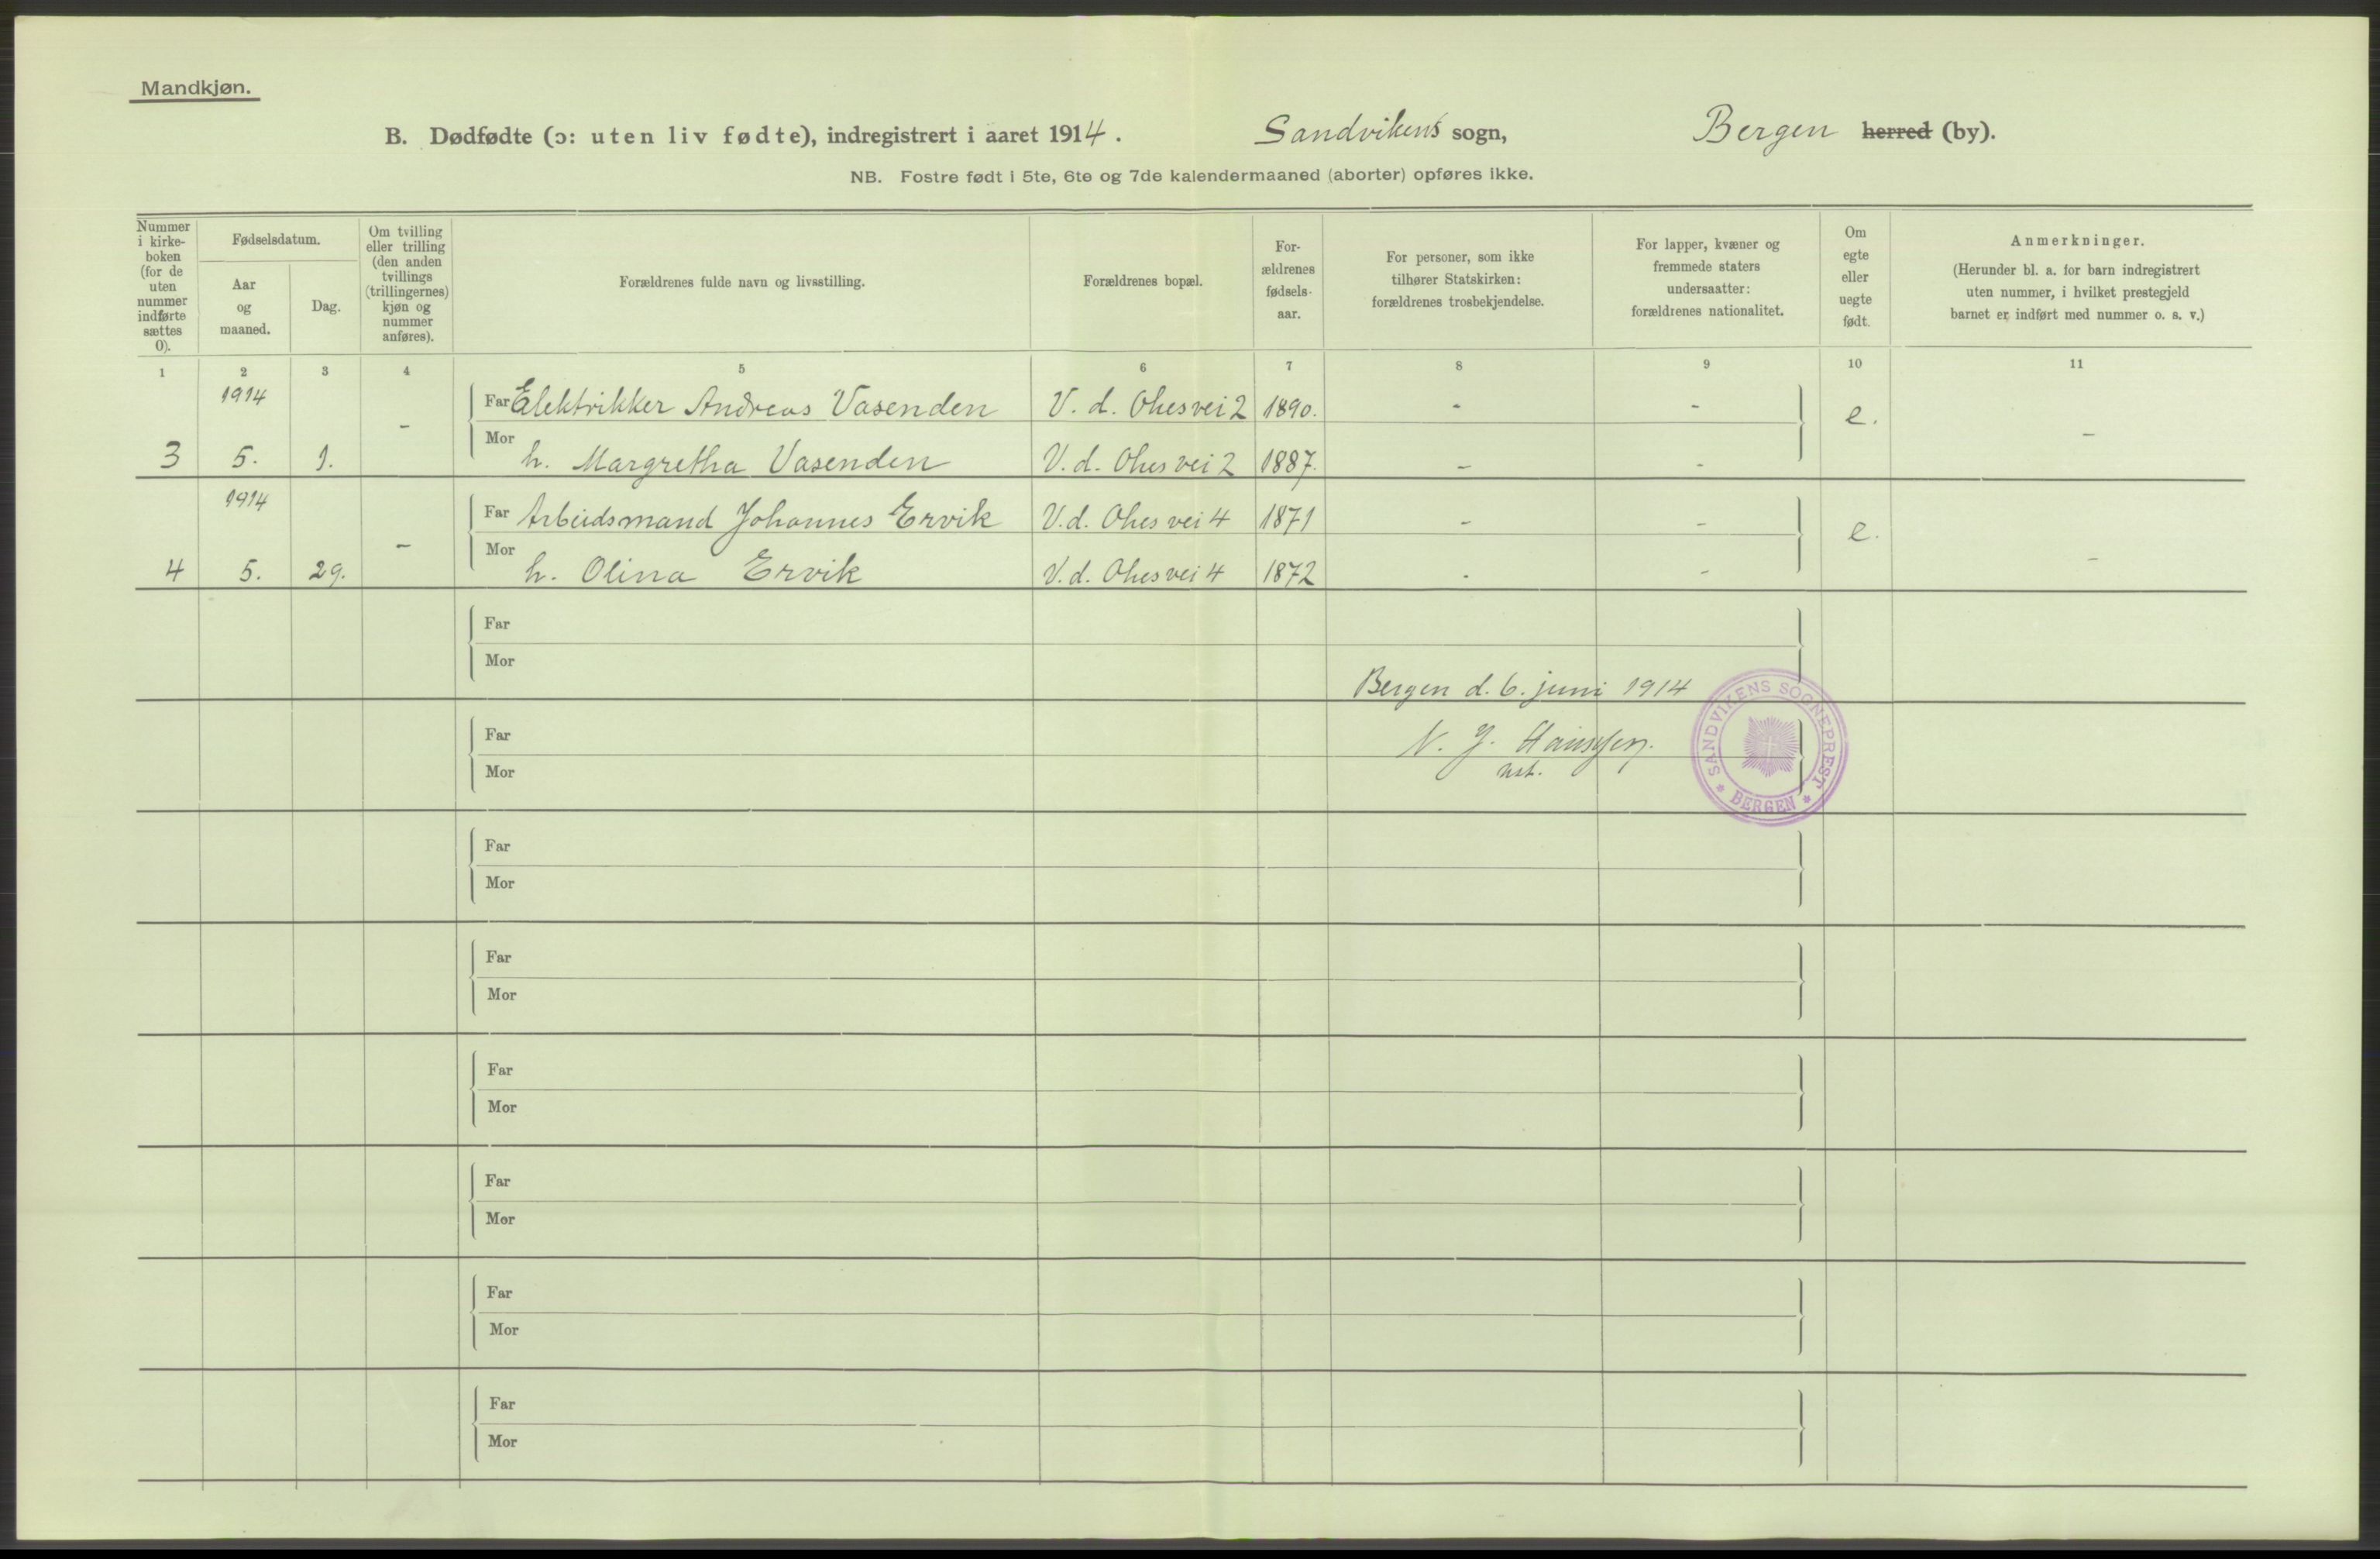 Mandkjøn.
B. Dødfødte (ɔ: uten liv fødte), indregistrert i aaret 1914. Sandvikens sogn, Bergen herred (by).
NB. Fostre født i 5te, 6te og 7de kalendermaaned (aborter) opføres ikke.
Nummer
i kirke-
boken
(for de
uten
nummer
indførte
sættes
0).
Fødselsdatum.
Aar
og
maaned.
Dag.
Om tvilling
eller trilling
(den anden
tvillings
(trillingernes)
kjøn og
nummer
anføres).
Forældrenes fulde navn og livsstilling.
Forældrenes bopæl.
For-
ældrenes
fødsels-
aar.
For personer, som ikke
tilhører Statskirken:
forældrenes trosbekjendelse.
For lapper, kvæner og
fremmede staters
undersaatter:
forældrenes nationalitet.
Om
egte
eller
uegte
født.
Anmerkninger.
(Herunder bl. a. for barn indregistrert
uten nummer, i hvilket prestegjeld
barnet er indført med nummer o. s. v.)
1 2 3 4 5 6 7 8 9 10 11
1914 - Far Elektrikker Andreas Vasenden V. d. Ohesvei 2 1890. - - e.
3 5. 1. Mor h. Margretha Vasenden V. d. Ohesvei 2 1887. - - -
1914 - Far Arbeidsmand Johannes Ervik V. d. Ohesvei 4 1871 - - e.
4 5. 29. Mor h. Olina Ervik V. d. Ohesvei 4 1872 - - -
Far
Mor
Bergen d. 6. juni 1914
Far
N. J. Hanssen.
Mor
SANDVIKENS SOGNEPREST
* BERGEN *
Far
Mor
Far
Mor
Far
Mor
Far
Mor
Far
Mor
Far
Mor